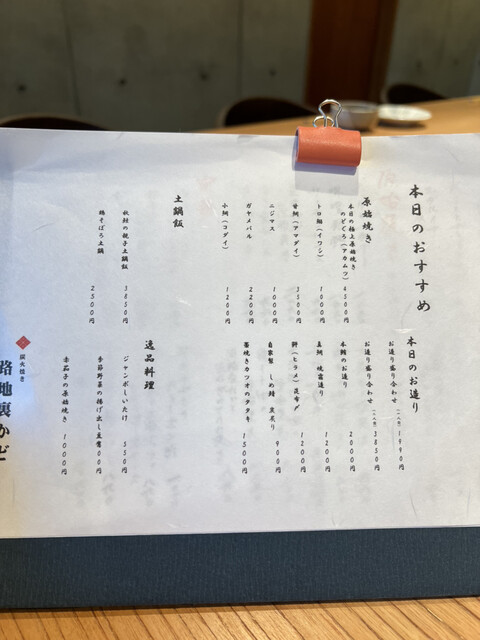 本日のおすすめ
原始焼き
本日の極上原始焼き
のどぐろ(アカムツ) 4500円
トロ鰯(イワシ) 1000円
甘鯛(アマダイ) 3500円
ニジマス 1000円
ガヤメバル 2200円
小鯛(コダイ) 1200円
土鍋飯
秋鮭の親子土鍋飯 3850円
鶏そぼろ土鍋 2500円
本日のお造り
お造り盛り合わせ(一人前) 1990円
お造り盛り合わせ(二人前) 3850円
本鮪のお造り 2000円
真鯛 焼霜造り 1200円
鮃(ヒラメ)昆布〆 1200円
自家製 しめ鯖 炭炙り 900円
藁焼きカツオのタタキ 1500円
逸品料理
ジャンボしいたけ 550円
季節野菜の揚げ出し豆腐 900円
赤茄子の原始焼き 1000円
炭火焼き
路地裏かど